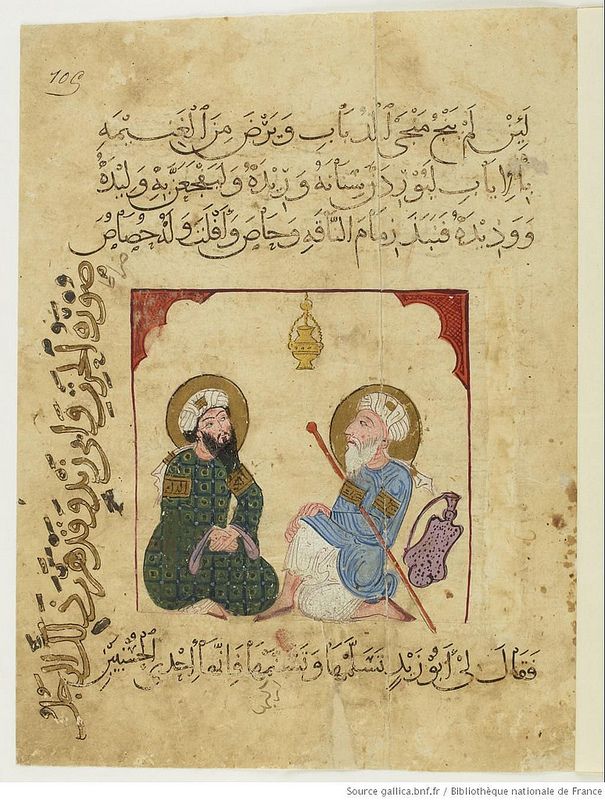 106
لَئِنْ لَمْ يَنْجُ مَنْجَى الذُّبَابِ وَيَرْضَ مِنَ الْغَنِيمَةِ
بِالْإِيَابِ لَيُورِدَنَّ سِنَانَهُ وَرِيدَهُ وَلَيَفْجَعَنَّ بِهِ وَلِيدَهُ
وَوَدِيدَهُ فَنَبَذَ زِمَامَ النَّاقَةِ وَحَاصَ وَأَفْلَتَ وَلَهُ حُصَاصٌ
صورة الحرث وابي زيد وقد هرب ذلك الرجل
فَقَالَ لِي أَبُو زَيْدٍ تَسَلَّمْهَا وَتَسَنَّمْهَا فَإِنَّهَا أَحْدَى الْحُسْنَيَيْنِ
Source gallica.bnf.fr / Bibliothèque nationale de France